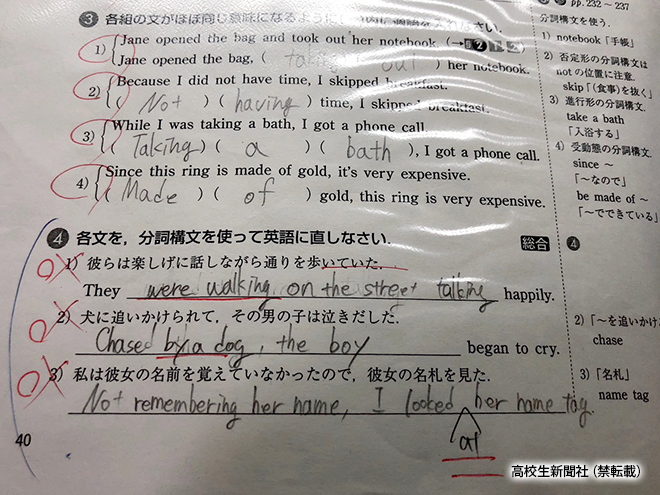 pp. 232～237
分詞構文を使う.
❸ 各組の文がほぼ同じ意味になるように
1) Jane opened the bag and took out her notebook.
Jane opened the bag, ( taking ) ( out ) her notebook.
2) Because I did not have time, I skipped breakfast.
( Not ) ( having ) time, I skipped breakfast.
3) While I was taking a bath, I got a phone call.
( Taking ) ( a ) ( bath ), I got a phone call.
4) Since this ring is made of gold, it's very expensive.
( Made ) ( of ) gold, this ring is very expensive.
1) notebook「手帳」
2) 否定形の分詞構文は
notの位置に注意.
skip「(食事)を抜く」
3) 進行形の分詞構文.
take a bath
「入浴する」
4) 受動態の分詞構文.
since ～
「～なので」
be made of ～
「～でできている」
❹ 各文を，分詞構文を使って英語に直しなさい.
総合
❹
1) 彼らは楽しげに話しながら通りを歩いていた.
They were walking on the street talking happily.
2) 犬に追いかけられて，その男の子は泣きだした.
Chased by a dog, the boy began to cry.
3) 私は彼女の名前を覚えていなかったので，彼女の名札を見た.
Not remembering her name, I looked her name tag.
at
2)「～を追いかけ
chase
3)「名札」
name tag
40
高校生新聞社（禁転載）